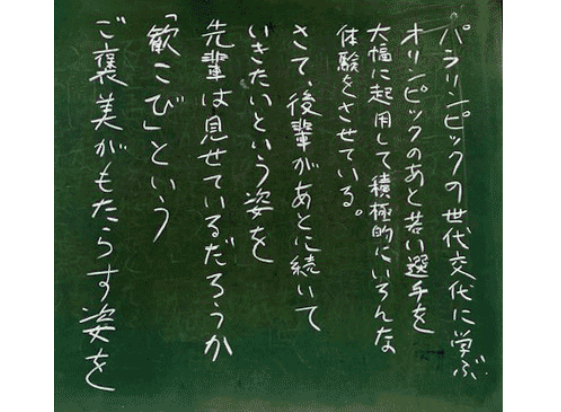 パラリンピックの世代交代に学ぶ
オリンピックのあと若い選手を
大幅に起用して積極的にいろんな
体験をさせている。
さて、後輩があとに続いて
いきたいという姿を
先輩は見せているだろうか
「歓こび」という
ご褒美がもたらす姿を